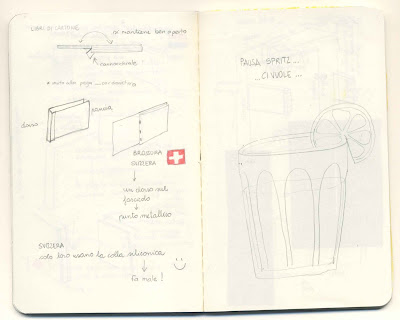 LIBRI DI CARTONE
si mantiene ben aperto
cannoncino
dorso
BROSSURA
SVIZZERA
un dorso sul
fascicolo
punto metallico
SVIZZERA
solo loro usano la colla siliconica
fa male!
PAUSA SPRITZ...
...CI VUOLE...